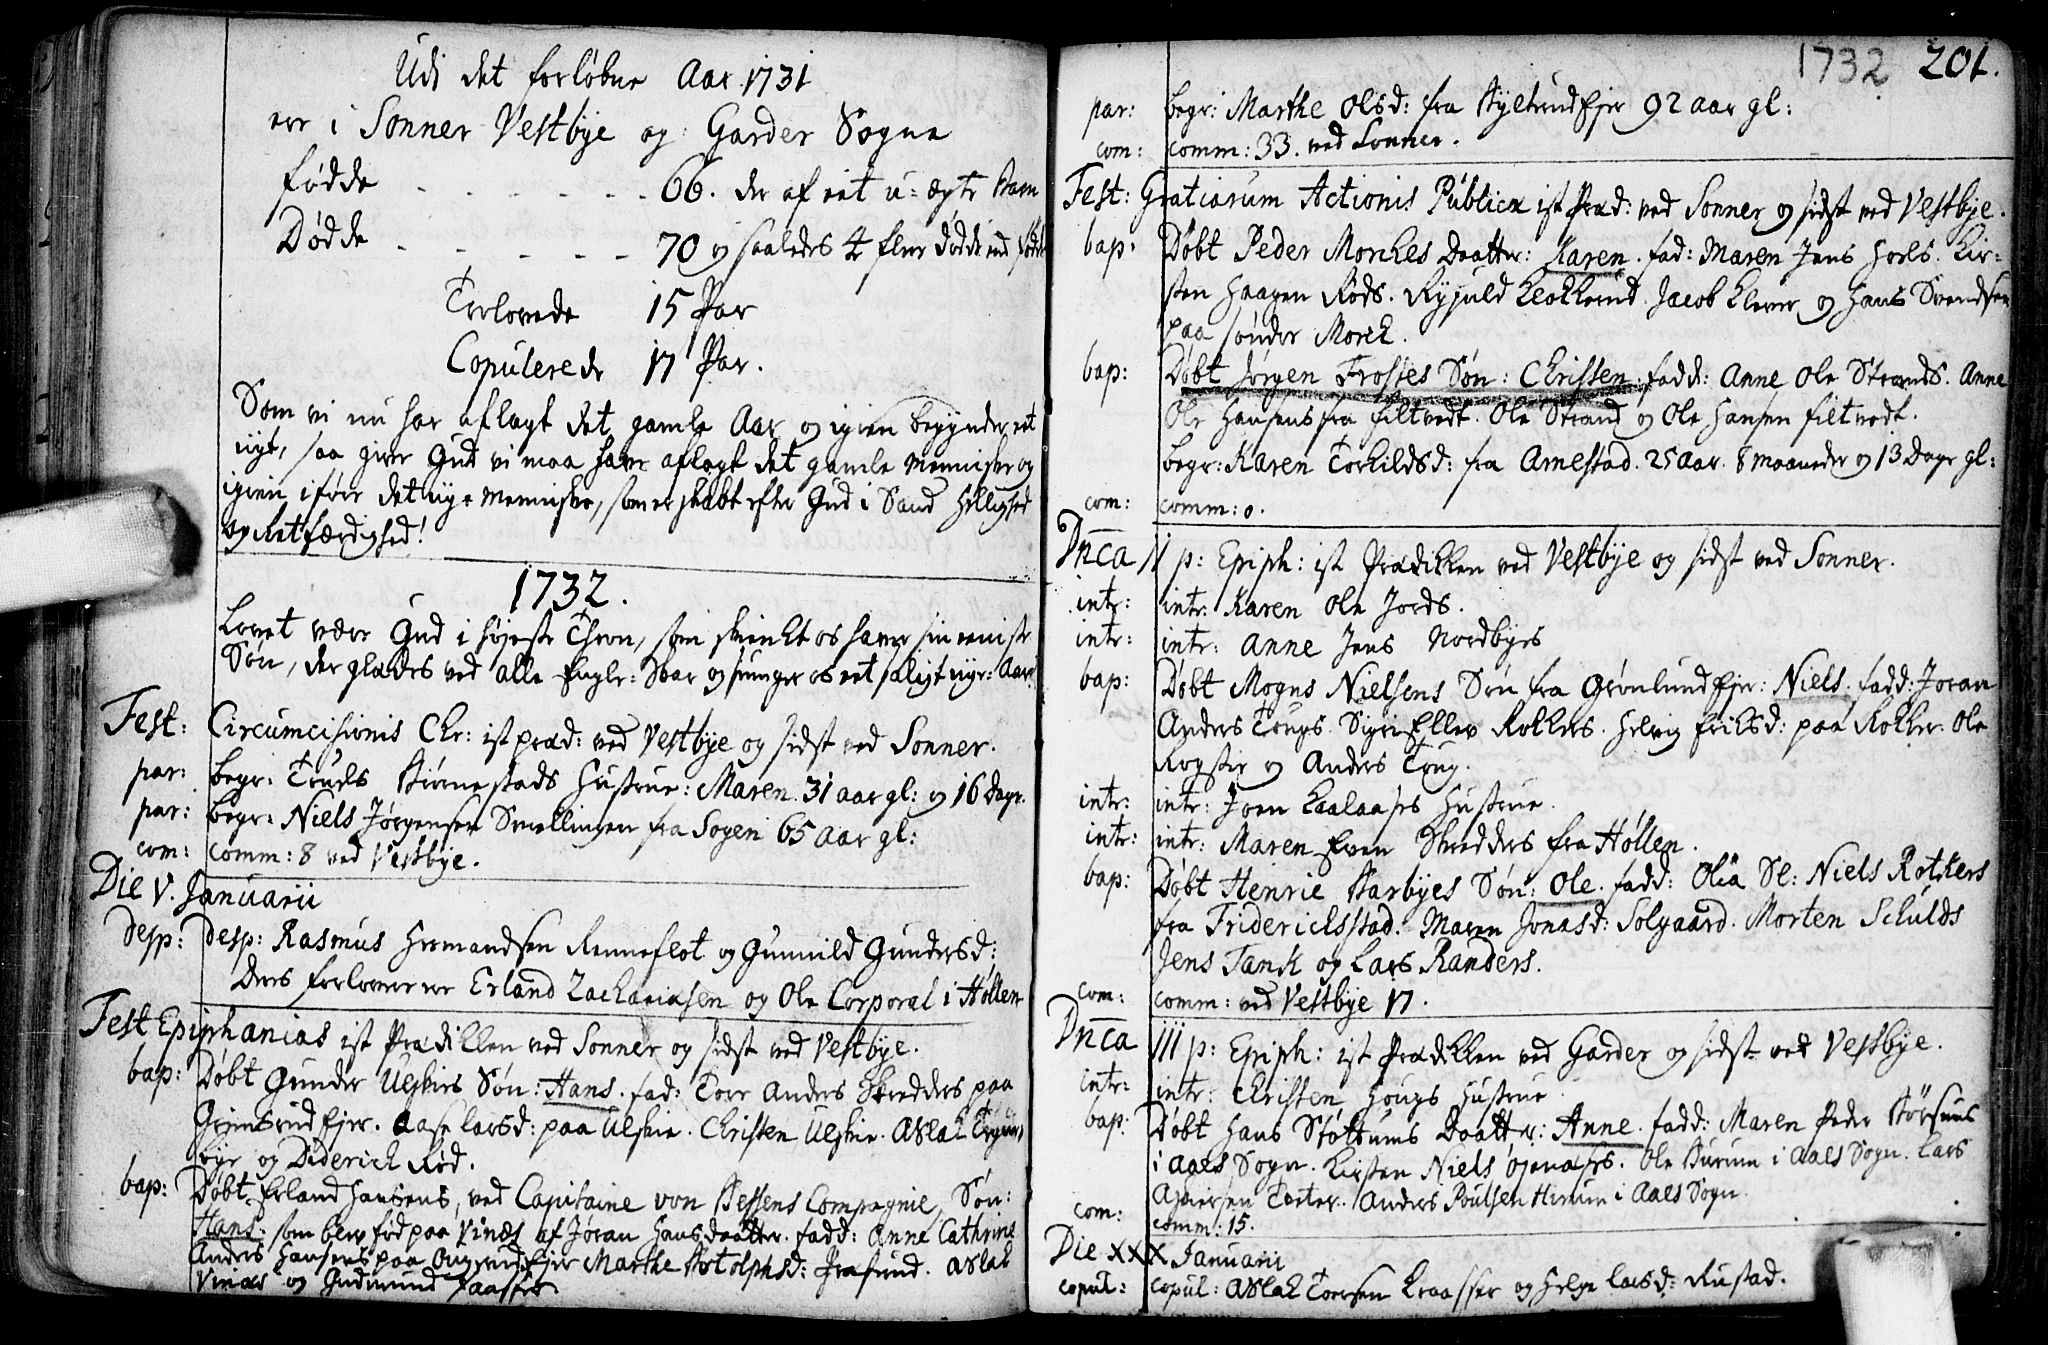 Udi det forløbne Aar 1731
ere i Sonner Vestbye og Garder Sogne
fødde - - - - - - 66. der af eet u-ægte Barn
Dødde - - - - - - 70 og saaledes 4 flere dødde end fødde
Trolovede 15 Par
Copulerede 17 Par.
Som vi nu har aflagt det gamle Aar og igien begynder eet
nyt, saa give Gud vi maa have aflagt det gamle Menniske og
igien iføre det nye Menniske, som er skabt efter Gud i Sand Hellighed
og Retfærdighed!
1732.
Lovet være Gud i høyeste Thron, som skienkt os haver sin eeniste
Søn, der glædes ved alle Engle-Skar og siunger os eet saligt nye-Aar
Fest: Circumcisionis Chr: ist præd: ved Vestbye og sidst ved Sonner.
par: begr: Truels Biørnestads Hustrue: Maren. 31 aar gl: og 16 Dage.
par: begr: Niels Jørgensen Smellingen fra Sogen 65 aar gl:
com: comm: 8 ved Vestbye.
Die V. Januarii
desp: desp: Rasmus Hermandsen Renneflot og Gunnild Gundersd:
Deres forlovere ere Erland Zachariasen og Ole Corporal i Høllen
Fest Epiphanias ist Prædikken ved Sonner og sidst ved Vestbye.
bap: Døbt Gunder Ulskies Søn: Hans. fad: Tore Anders Skredders paa
Grimsrud Ejer. Aase Larsd: paa Ulskie. Christen Ulskie. Aslak
bye og Diderich Rød.
bap: Døbt Erland Hansens, ved Capitaine von Bessens Compagnie, Søn:
Hans: som blev fød paa Vinæs af Jøran Hansdaatter. fadd: Anne Cathrine
Anders Hansens paa Ejer Marthe Botolphsd: Aslak
Vinæs og Gudmund
1732 201.
par: begr: Marthe Olsd: fra Ejer 92 aar gl:
com: comm: 33. ved Sonner.
Fest: Gratiarum Actionis Publicæ ist Præd: ved Sonner og sidst ved Vestbye.
bap: Døbt Peder Morches Daatter: Karen. fad: Maren Jens Hvels. Kir-
sten Haagen Røds. Kiokkerud. Jacob Klever og Hans Svendsen
paa sønder Morck.
bap: Døbt Jørgen Frostes Søn: Christen. fadd: Anne Ole Strands. Anne
Ole Hansens fra filtvedt. Ole Strand og Ole Hansen filtvedt.
begr: Karen Torkildsd: fra Arnestad. 25 aar. 8 maaneder og 13 Dage gl:
com: comm: 0.
Dnca II p: Epiph: ist Prædikken ved Vestbye og sidst ved Sonner.
intr: intr: Karen Ole Jords.
intr: intr: Anne Jens Nordbyes
bap: Døbt Mogns Nielsens Søn fra Grønlund Ejer: Niels. fadd: Joran
Anders Tougs. Sigri Ellev Rokkers. Helvig Eriksd: paa Rokker. Ole
Rogstie og Anders Toug.
intr: intr: Joen Hustrue.
intr: intr: Maren Even Skredders fra Høllen.
bap: Døbt Henrie Karbyes Søn: Ole. fadd: Olea Sl: Niels Rokkers
fra Friderichsstad. Maren Jonasd: Solgaard. Morten Schulds
Jens Tank og Lars Randers.
com: comm: ved Vestbye 17.
Dnca III p: Epiph: ist Prædikken ved Garder og sidst ved Vestbye.
intr: intr: Christen Hougs Hustrue.
bap: Døbt Hans Støttums Daatter: Anne. fadd: Maren Peder
i Aaes Sogn. Kirsten Niels Ole Burum i Aaes Sogn. Lars
Toeter. Anders Poulsen Himum i Aaes Sogn.
com: comm: 15.
Die XXX Januarii
copul: copul: Aslak Toersen Kraasser og Helge Larsd: Rustad.